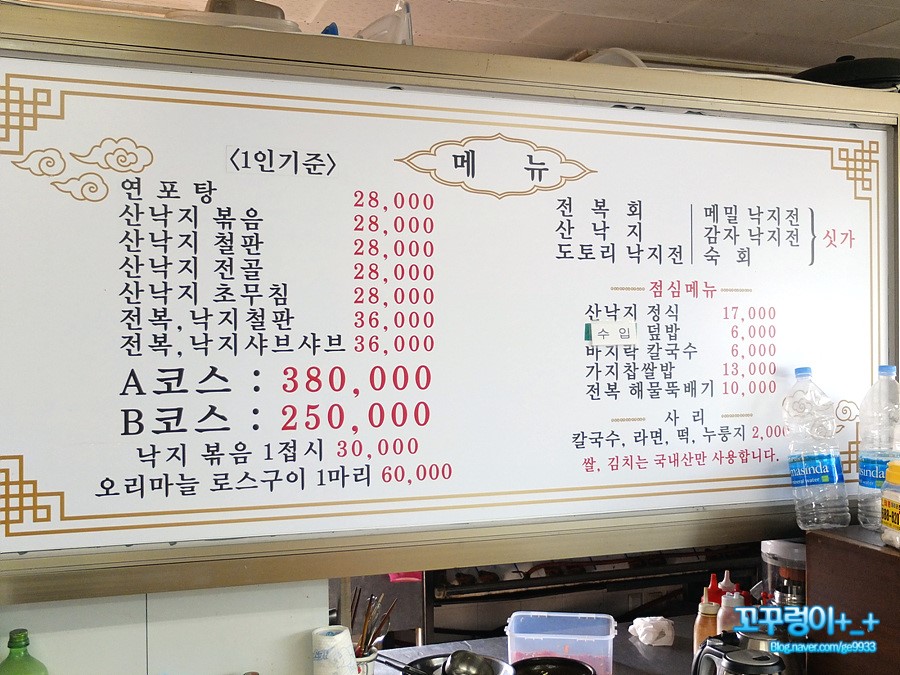 〈1인기준〉
메 뉴
연 포 탕 28,000
산낙지 볶음 28,000
산낙지 철판 28,000
산낙지 전골 28,000
산낙지 초무침 28,000
전복,낙지철판 36,000
전복,낙지샤브샤브 36,000
A코스 : 380,000
B코스 : 250,000
낙지 볶음 1접시 30,000
오리마늘 로스구이 1마리 60,000
전 복 회 메밀 낙지전
산 낙 지 감자 낙지전 싯가
도토리 낙지전 숙 회
점심메뉴
산낙지 정식 17,000
수 입 덮밥 6,000
바지락 칼국수 6,000
가지찹쌀밥 13,000
전복 해물뚝배기 10,000
사 리
칼국수, 라면, 떡, 누룽지 2,000
쌀, 김치는 국내산만 사용합니다.
masinda
꼬꾸렁이+_+
Blog.naver.com/ge9933